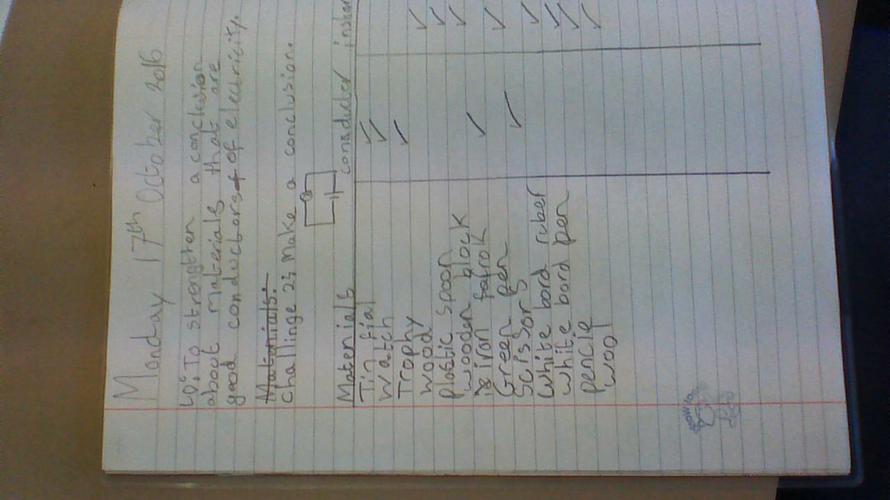 Monday 17th October 2016
LO: To strengthen a conclusion
about materials that are
good conductors of electricity.
Materials:
Challinge 2; Make a conclusion.
Materials conducter inster
Tin fial ✓
Watch ✓
Trophy ✓
Wood ✓
Plastic spoon ✓
Wooden block ✓
iron ✓
Green pen ✓
Scissors ✓
White bord ruber ✓
White bord pen ✓
pencie ✓
wool ✓